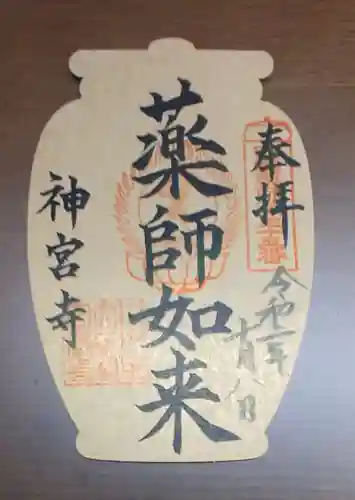 奉拝
令和一年
十月八日
薬師如来
神宮寺